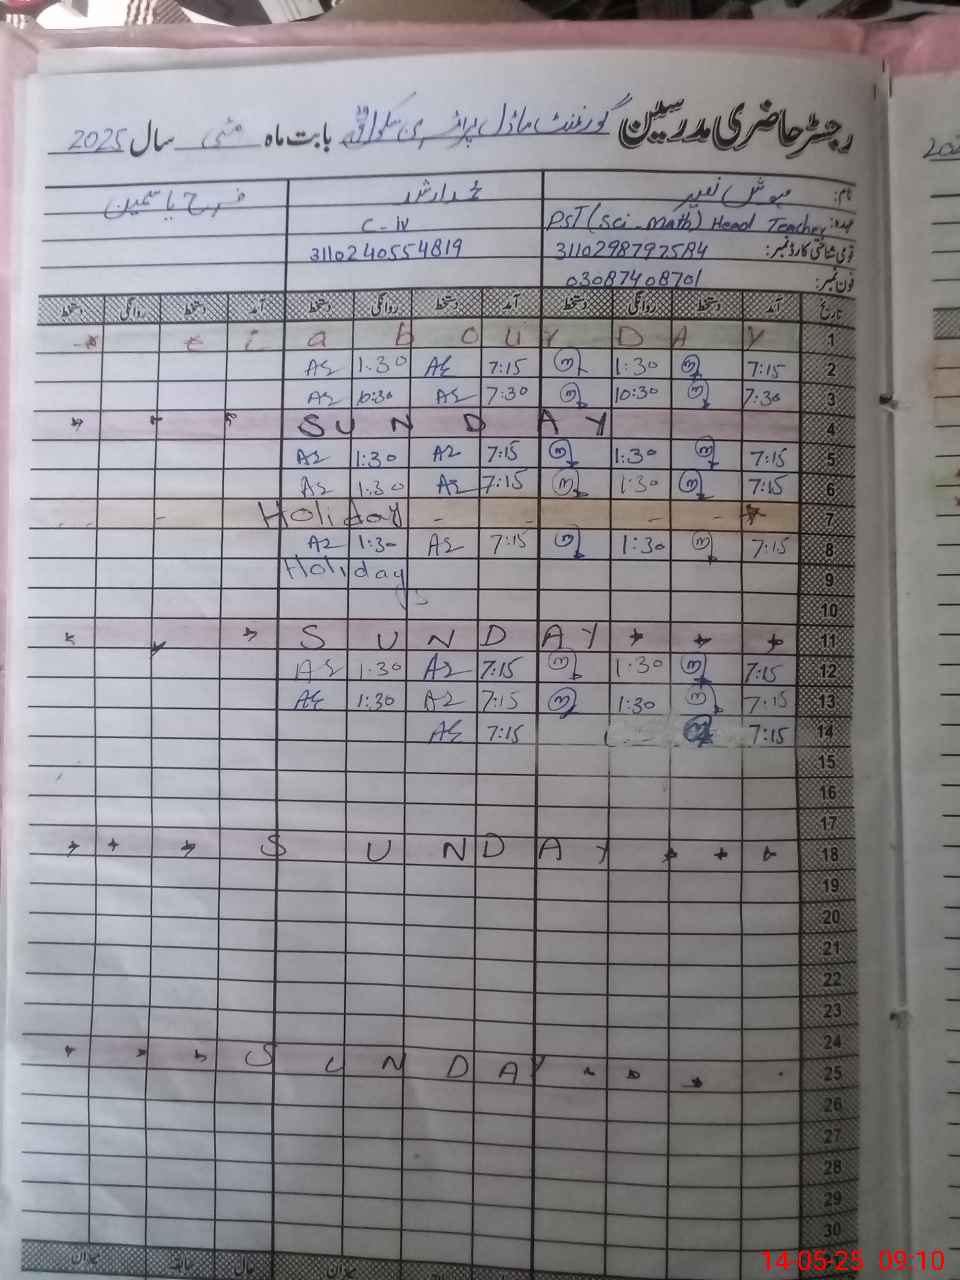 رجسٹر حاضری مدرسین گورنمنٹ ماڈل پرائمری سکول بابت ماہ مئی سال 2025
نام: مہوش نصیر ارشد فرح یاسمین
عہدہ: PST (Sci-Math) Head Teacher C-iv
قومی شناختی کارڈ نمبر: 3110298797584 3110240554819
فون نمبر: 03087408701
تاریخ آمد دستخط روانگی دستخط آمد دستخط روانگی دستخط آمد دستخط روانگی دستخط
1 labour DAY
2 7:15 1:30 7:15 1:30
3 7:30 10:30 7:30 10:30
4 SUNDAY
5 7:15 1:30 7:15 1:30
6 7:15 1:30 7:15 1:30
7 Holiday
8 7:15 1:30 7:15 1:30
9 Holidays
10
11 SUNDAY
12 7:15 1:30 7:15 1:30
13 7:15 1:30 7:15 1:30
14 7:15 7:15
15
16
17
18 SUNDAY
19
20
21
22
23
24
25 SUNDAY
26
27
28
29
30
میزان حال سابقہ میزان
14-05-25 09:10